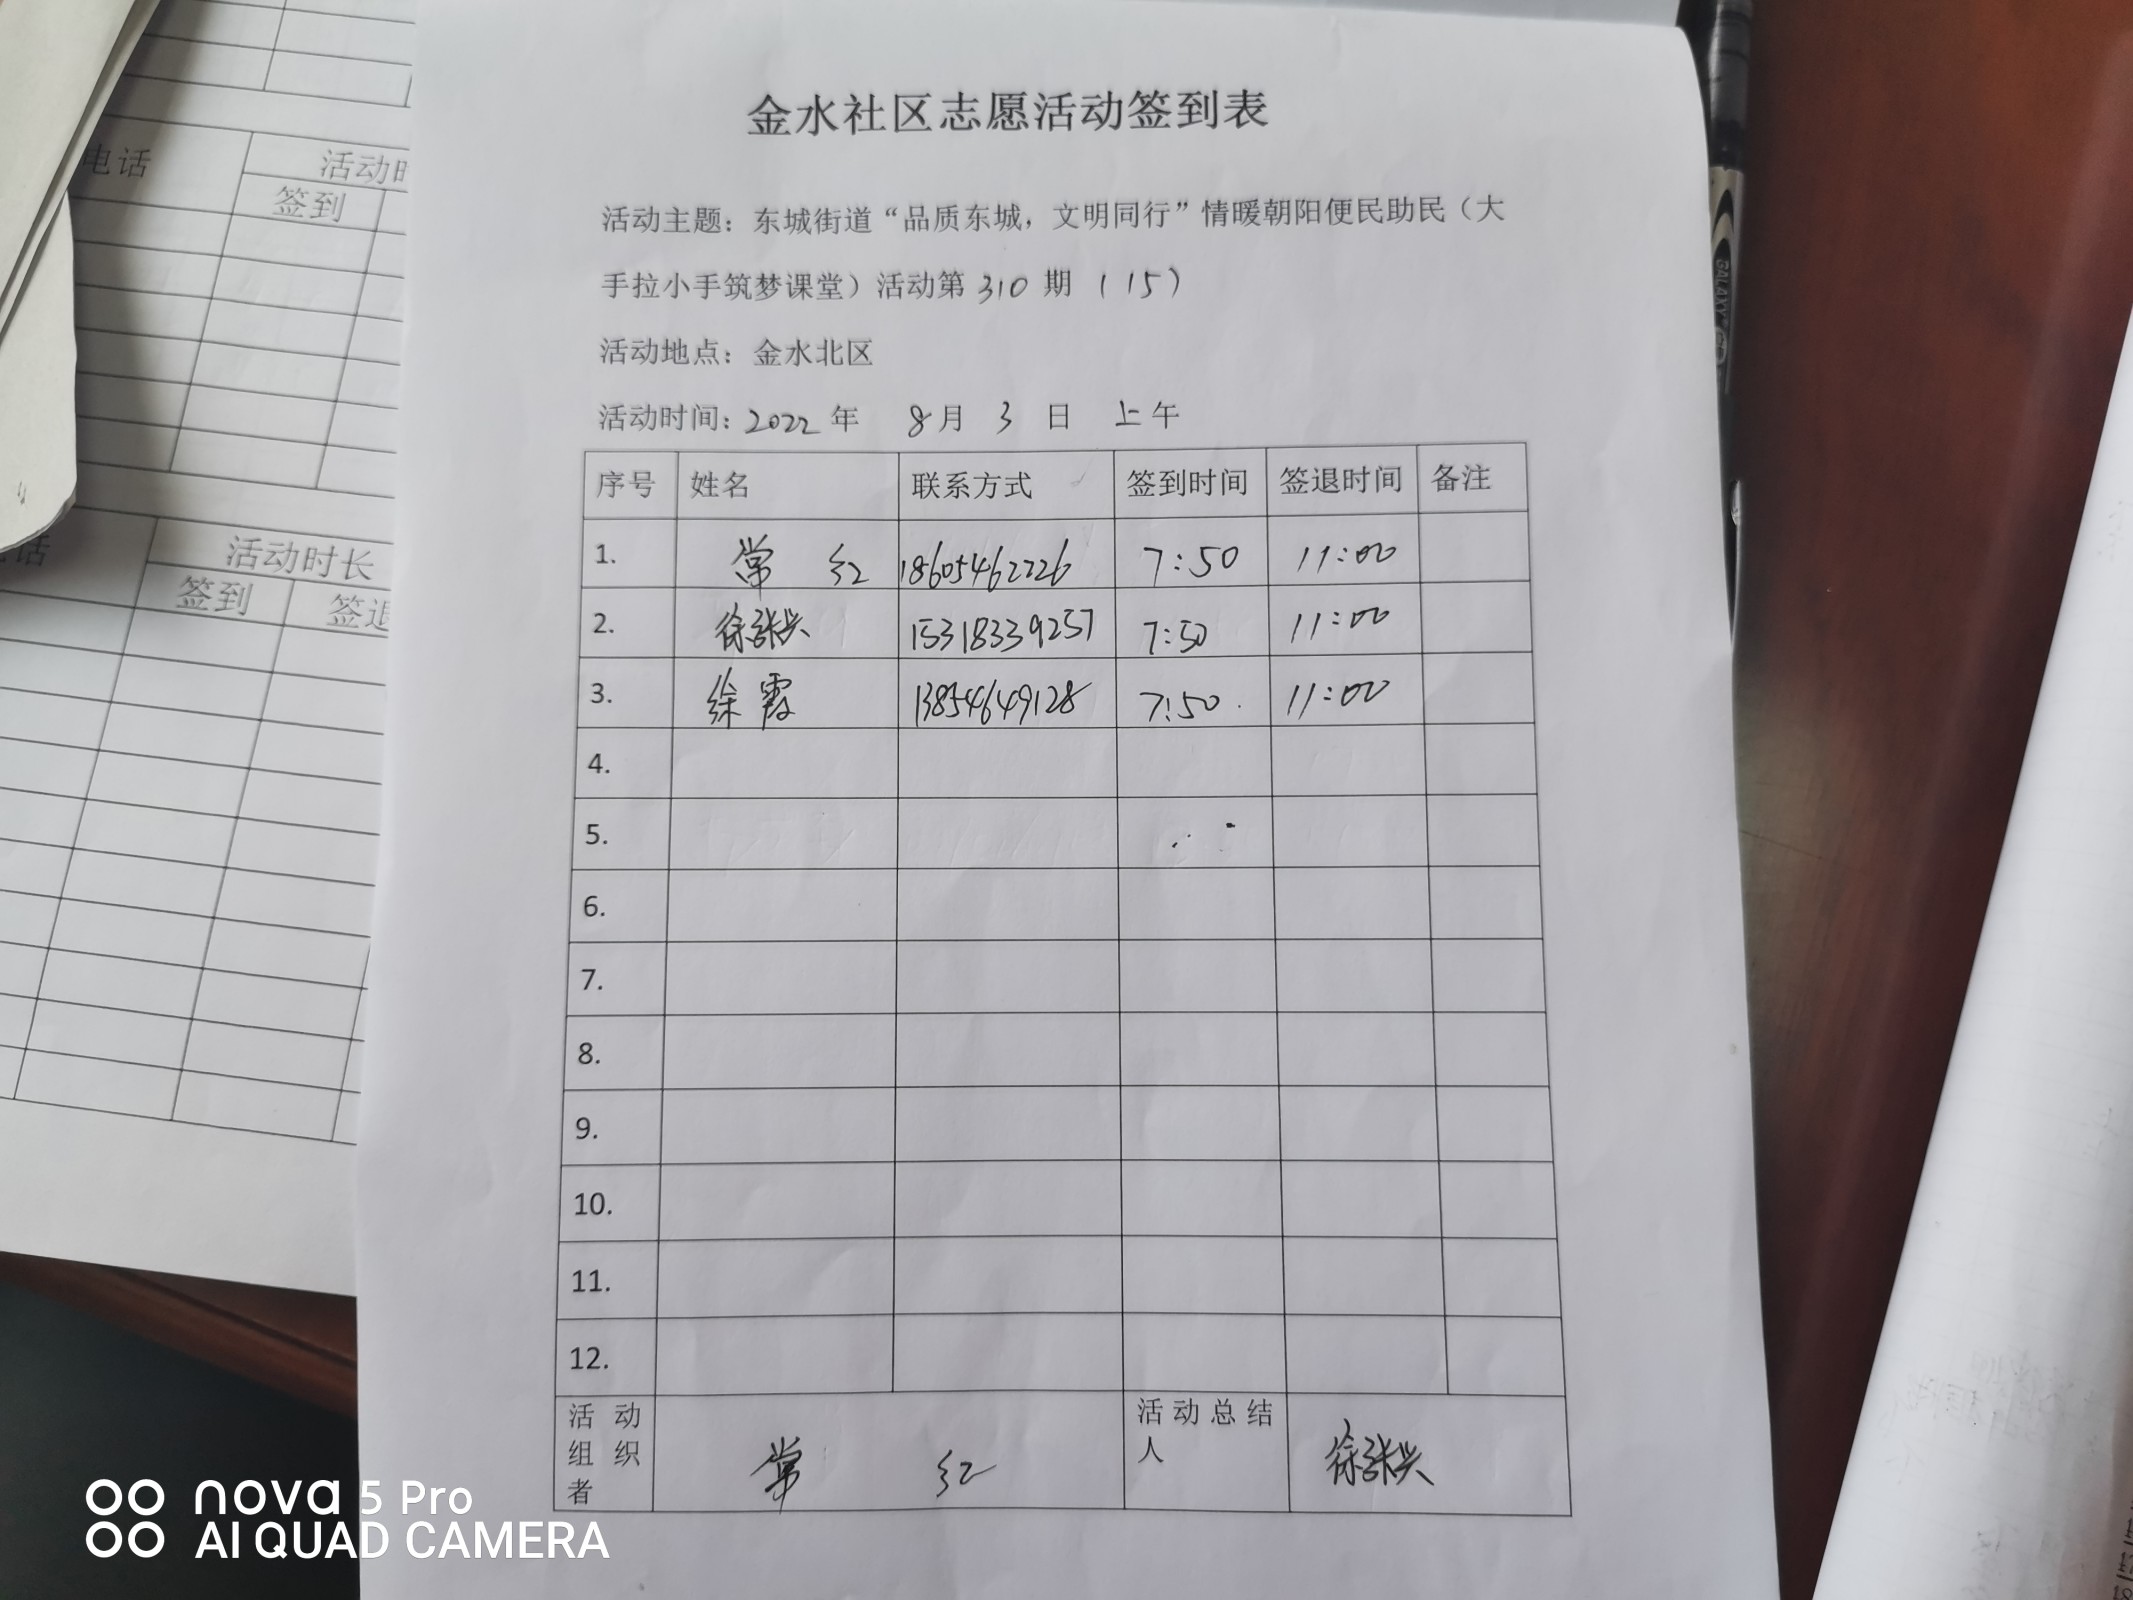 金水社区志愿活动签到表
活动主题：东城街道“品质东城，文明同行”情暖朝阳便民助民（大
手拉小手筑梦课堂）活动第 310 期 （15）
活动地点：金水北区
活动时间：2022 年 8月 3 日 上午
序号 姓名 联系方式 签到时间 签退时间 备注
1. 常 红 18605462226 7:50 11:00
2. 徐张兴 15318339257 7:50 11:00
3. 徐霞 13854649128 7:50 11:00
4.
5.
6.
7.
8.
9.
10.
11.
12.
活动组织者 常 红 活动总结人 徐张兴
电话 活动时
签到
话 活动时长
签到 签退
GALAXY
nova 5 Pro
AI QUAD CAMERA